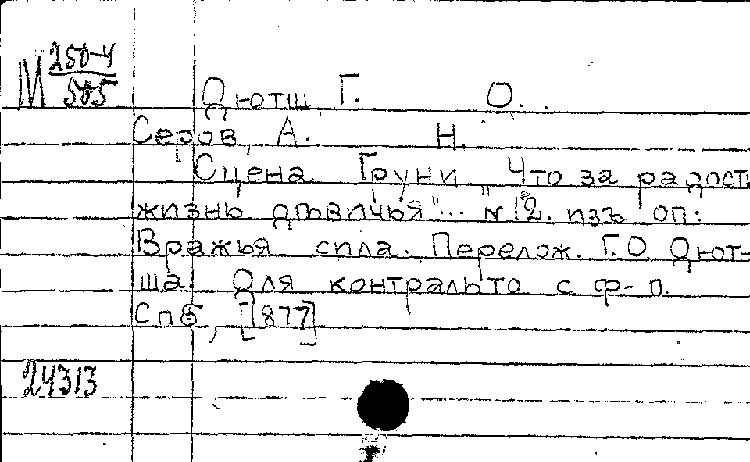 М 250-4
585
Дютш, Г. О.
Серов, А. Н.
Сцена Груни "Что за радость
жизнь дѣвичья"... №12. изъ оп:
Вражья сила. Перелож. Г.О Дют-
ша для контральто с ф-п.
Спб, [1877]
24313